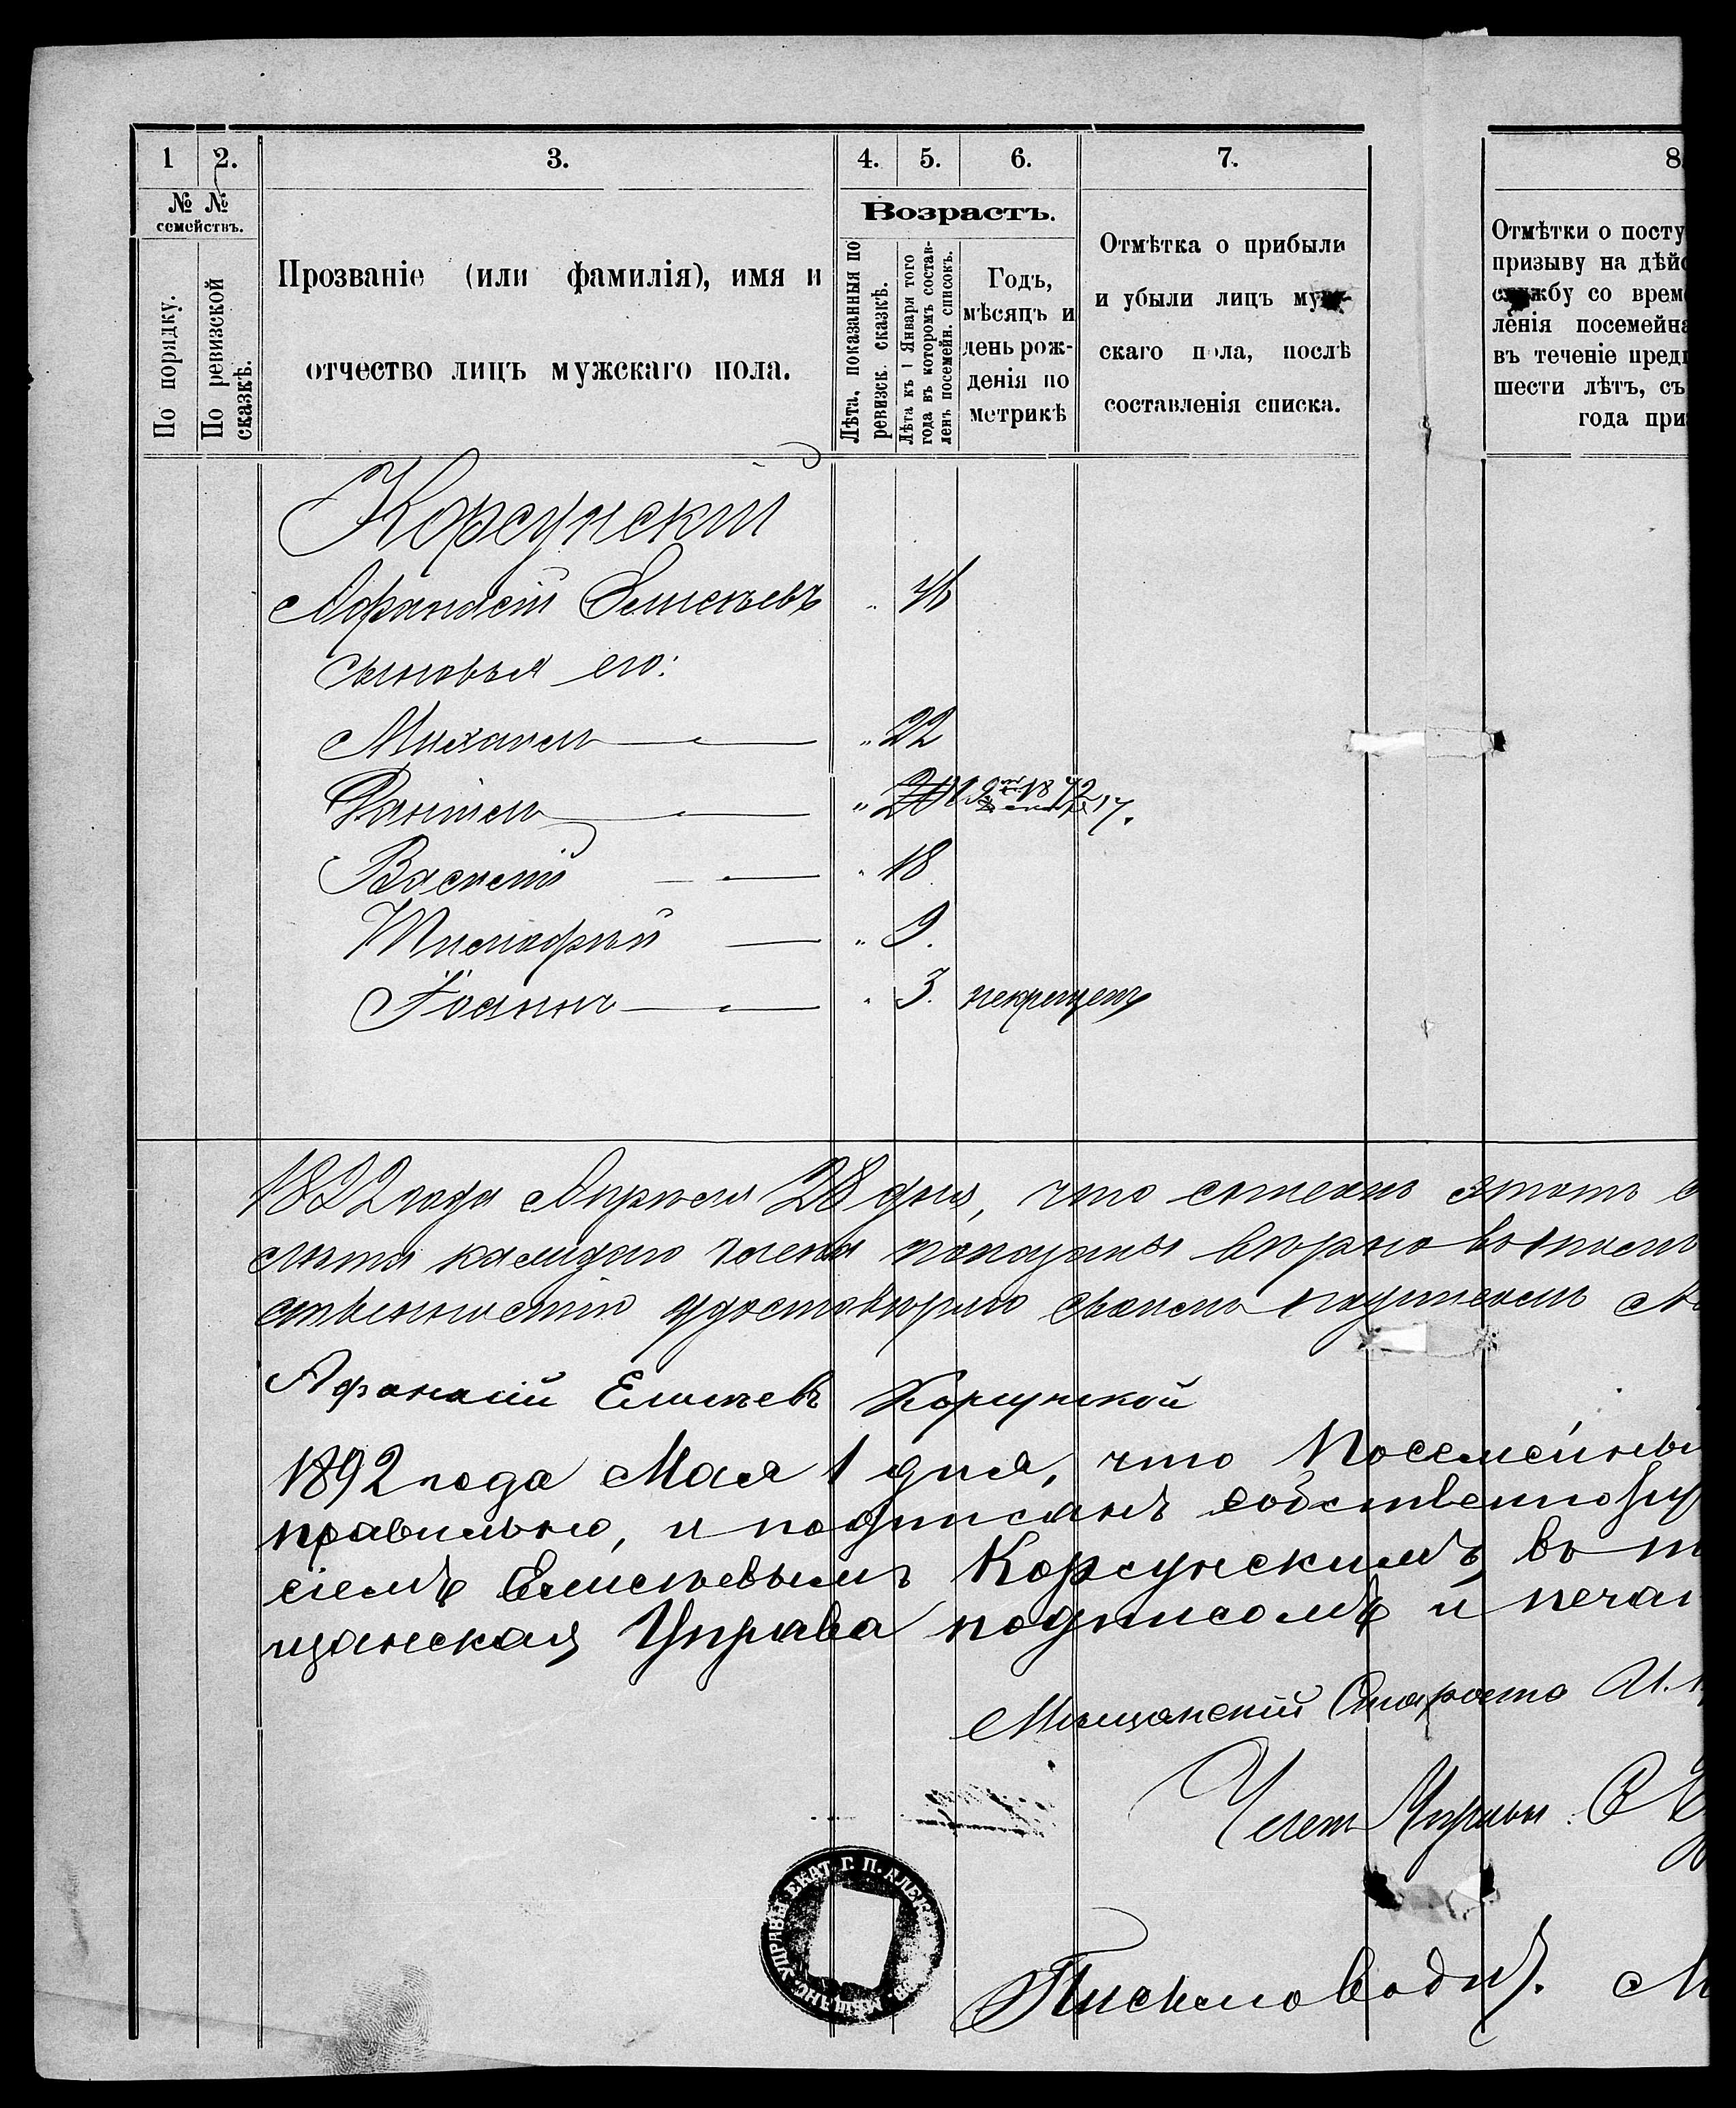 1 2. 3. 4. 5. 6. 7. 8.
№ № семействъ.
По порядку.
По ревизской сказкѣ.
Прозваніе (или фамилія), имя и
отчество лицъ мужскаго пола.
Возрастъ.
Лѣта, показанныя по ревизск. сказкѣ.
Лѣта къ 1 Января того года въ которомъ составленъ посемейн. списокъ.
Годъ,
мѣсяцъ и
день рож-
денія по
метрикѣ
Отмѣтка о прибыли
и убыли лицъ муж-
скаго пола, послѣ
составленія списка.
Отмѣтки о посту
призыву на дѣйс
службу со врем
ленія посемейна
въ теченіе пред
шести лѣтъ, съ
года при
Корсунскій
Афанасій Елисѣевъ " 46
сыновья его:
Михаилъ " 22
Даніилъ " 20 1872 17.
Василій " 18
Тимофѣй " 9.
Іоаннъ " 3. некрещенъ
1892 года Апрѣля 28 дня, что этотъ с
лѣта каждаго члена показаны вѣрно въ
удостовѣряю своимъ
Афанасій Елисѣевъ Корсунской
1892 года Мая 1 дня, что Посемейны
правильно, и подписанъ собственнору
сіемъ Елисѣевымъ Корсунскимъ, въ т
щанская Управа подписомъ и печат
Мѣщанскій Староста И.
Членъ Управы
Письмоводит. М
МѢЩАНС. УПРАВЫ ЕКАТ. Г. П. АЛЕК